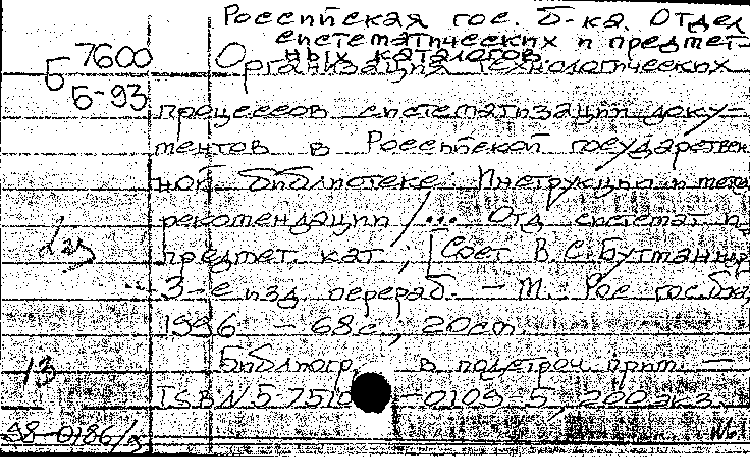 Российская гос. б-ка. Отдел
систематических и предмет-
ных каталогов
Б 7600
Б-93
Организация технологических
процессов систематизации доку-
ментов в Российской государствен
ной библиотеке: Инструкции и метод
рекомендации / ... Отд системат и
предмет. кат.; [Сост В.С. Бутманюк
3-е изд перераб. - М.: Рос гос. бка
1996. - 68с.; 20см.
Библиогр. в подстроч прим. -
13
ISBN 5-7510-0103-5, 200экз.
98-0186/